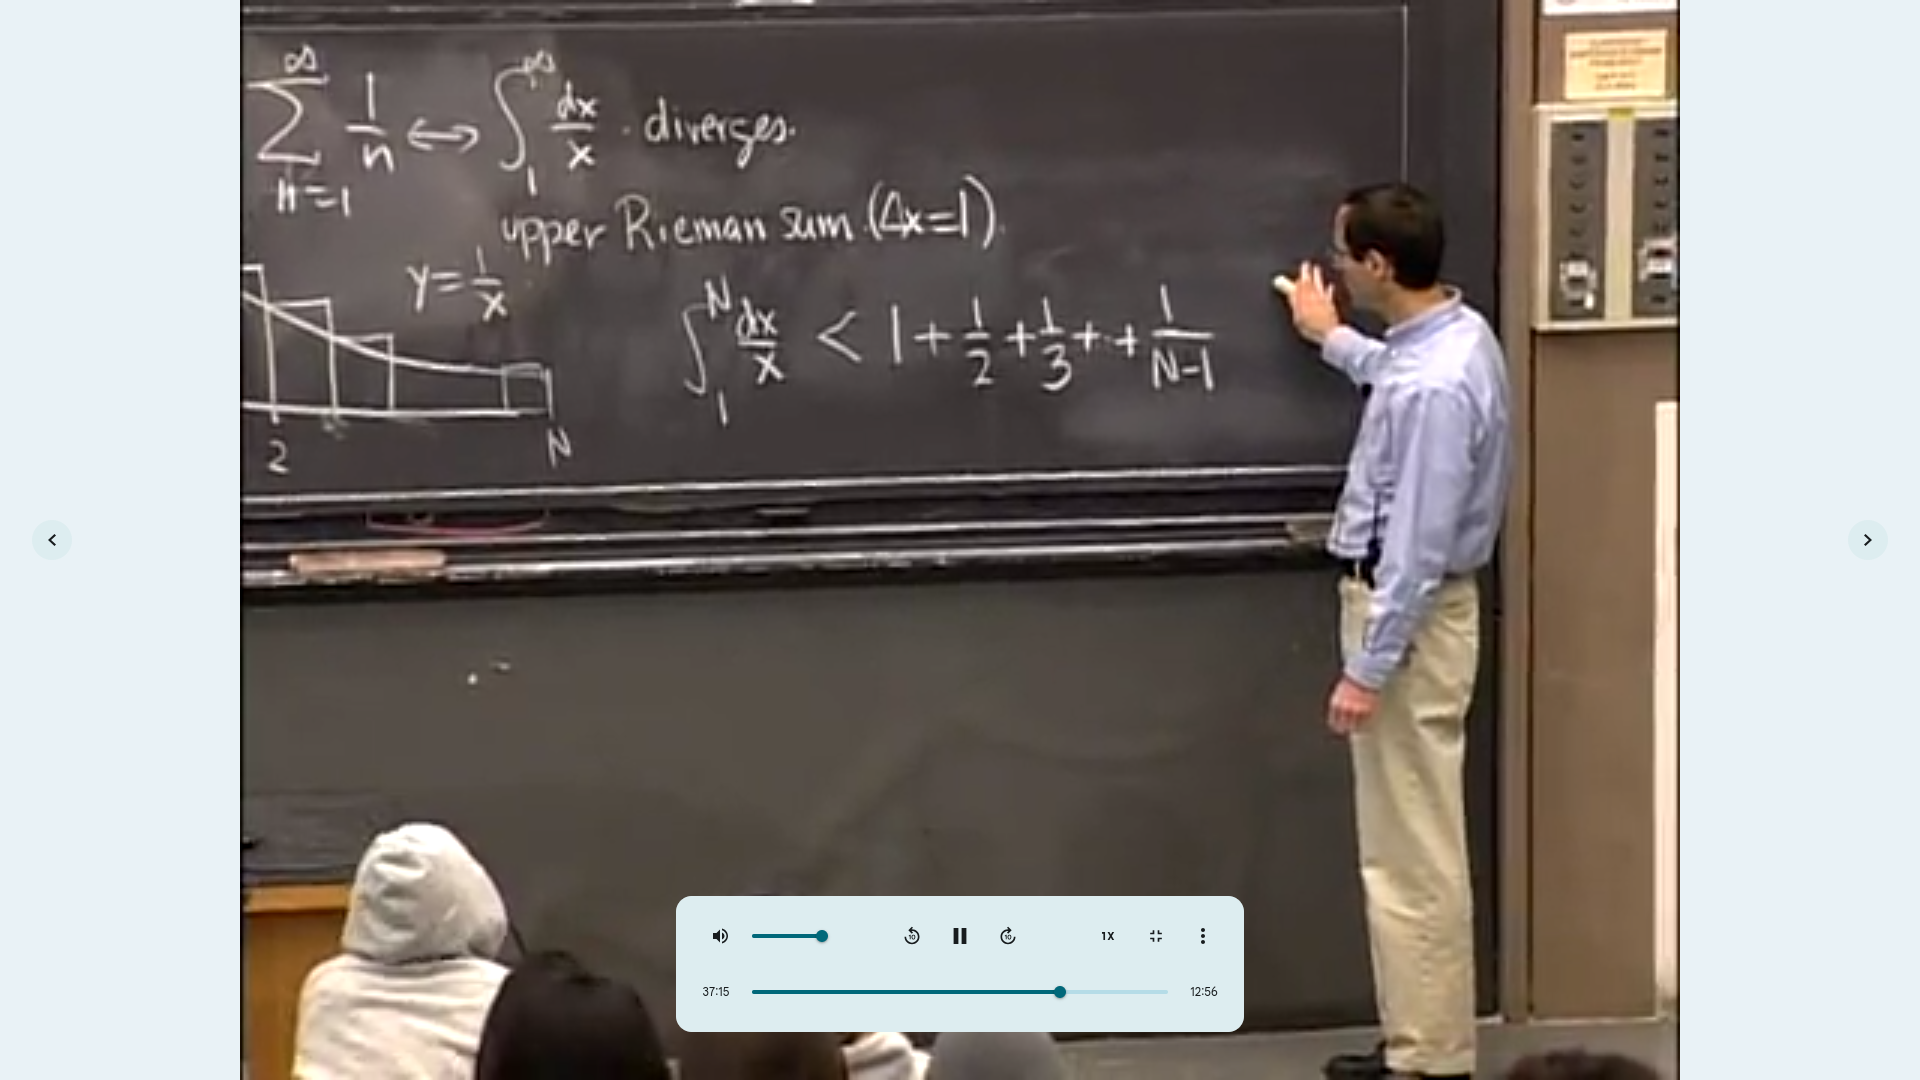 ∞ ∑ n=1 1/n ↔ ∫₁^∞ dx/x · diverges.
upper Rieman sum (Δx=1).
y = 1/x
∫₁^N dx/x < 1 + 1/2 + 1/3 + ·· + 1/(N-1)
2
N
1X
37:15
12:56